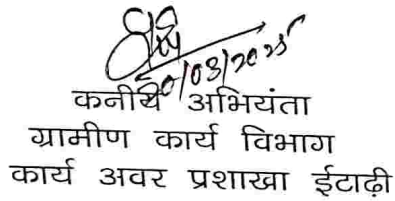 20/03/2025
कनीय अभियंता
ग्रामीण कार्य विभाग
कार्य अवर प्रशाखा ईटाढ़ी